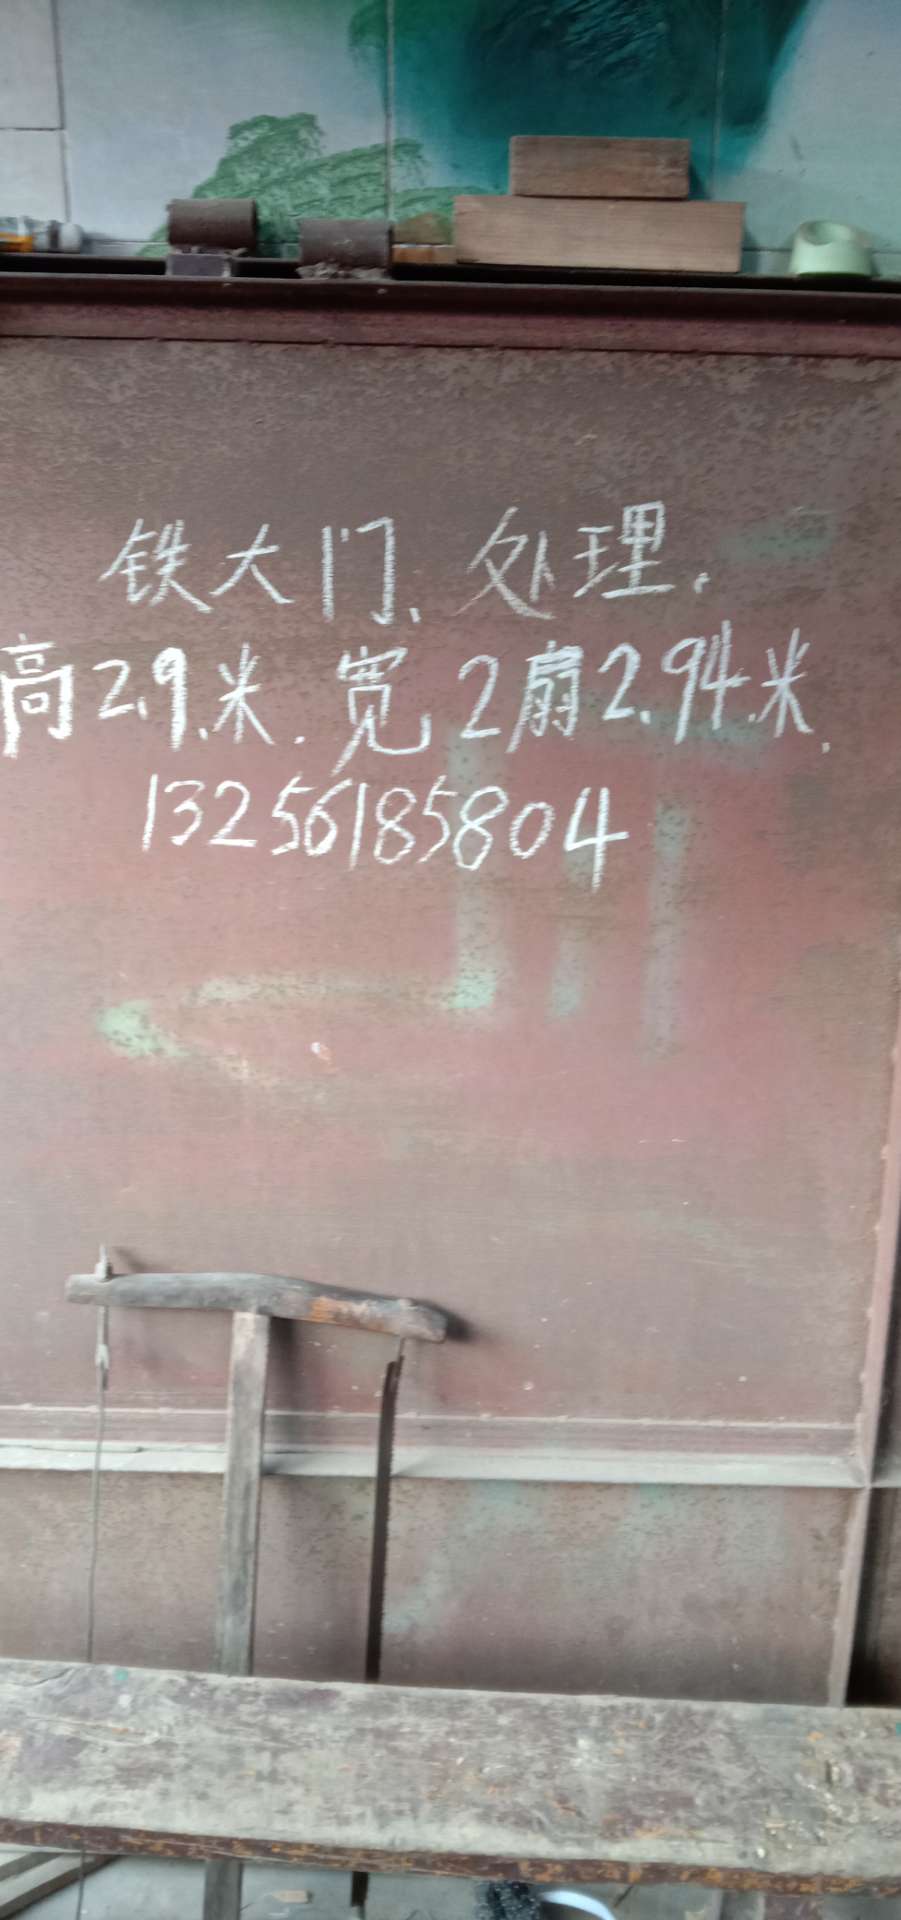 铁大门、处理.
高2.9.米.宽2扇2.94.米.
13256185804